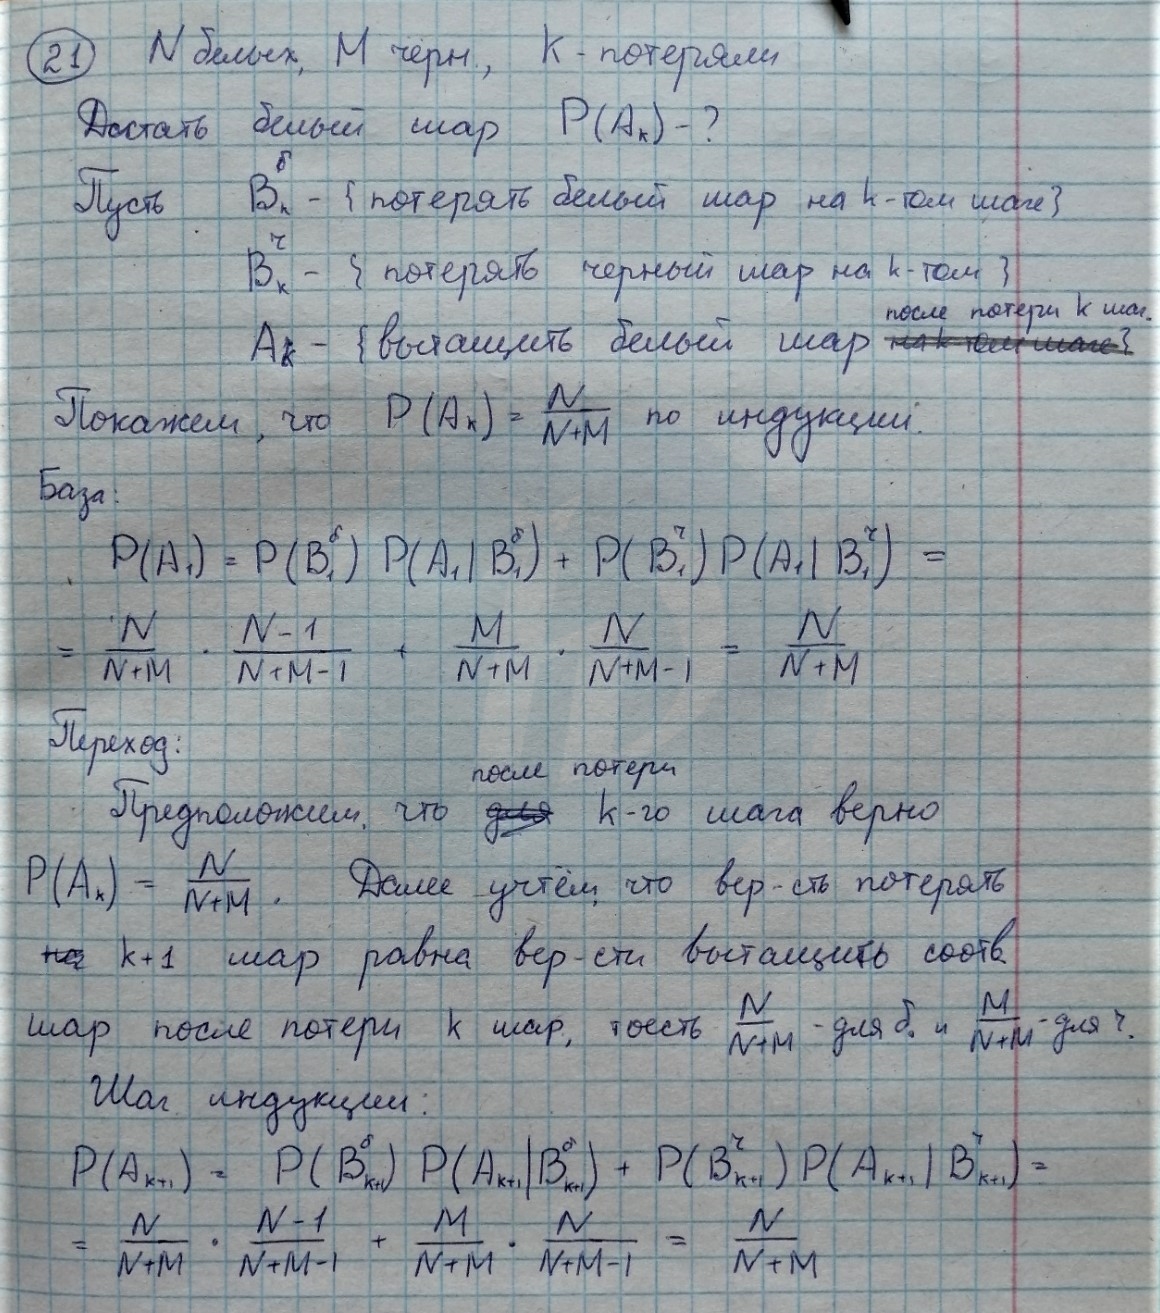 21 N белых, M черн., K - потеряли
Достать белый шар P(A_k) - ?
Пусть B_k^б - { потерять белый шар на k-том шаге}
B_k^ч - { потерять черный шар на k-том }
A_k - {вытащить белый шар после потери k шаг. на k-том шаге}
Покажем, что P(A_k) = N/(N+M) по индукции.
База:
P(A_1) = P(B_1^б) P(A_1 | B_1^б) + P(B_1^ч) P(A_1 | B_1^ч) =
= N/(N+M) · (N-1)/(N+M-1) + M/(N+M) · N/(N+M-1) = N/(N+M)
Переход:
Предположим, что для после потери k-го шага верно
P(A_k) = N/(N+M). Далее учтём, что вер-сть потерять
на k+1 шар равна вер-сти вытащить соотв.
шар после потери k шар, тоесть N/(N+M) - для б. и M/(N+M) - для ч.
Шаг индукции:
P(A_{k+1}) = P(B_{k+1}^б) P(A_{k+1} | B_{k+1}^б) + P(B_{k+1}^ч) P(A_{k+1} | B_{k+1}^ч) =
= N/(N+M) · (N-1)/(N+M-1) + M/(N+M) · N/(N+M-1) = N/(N+M)